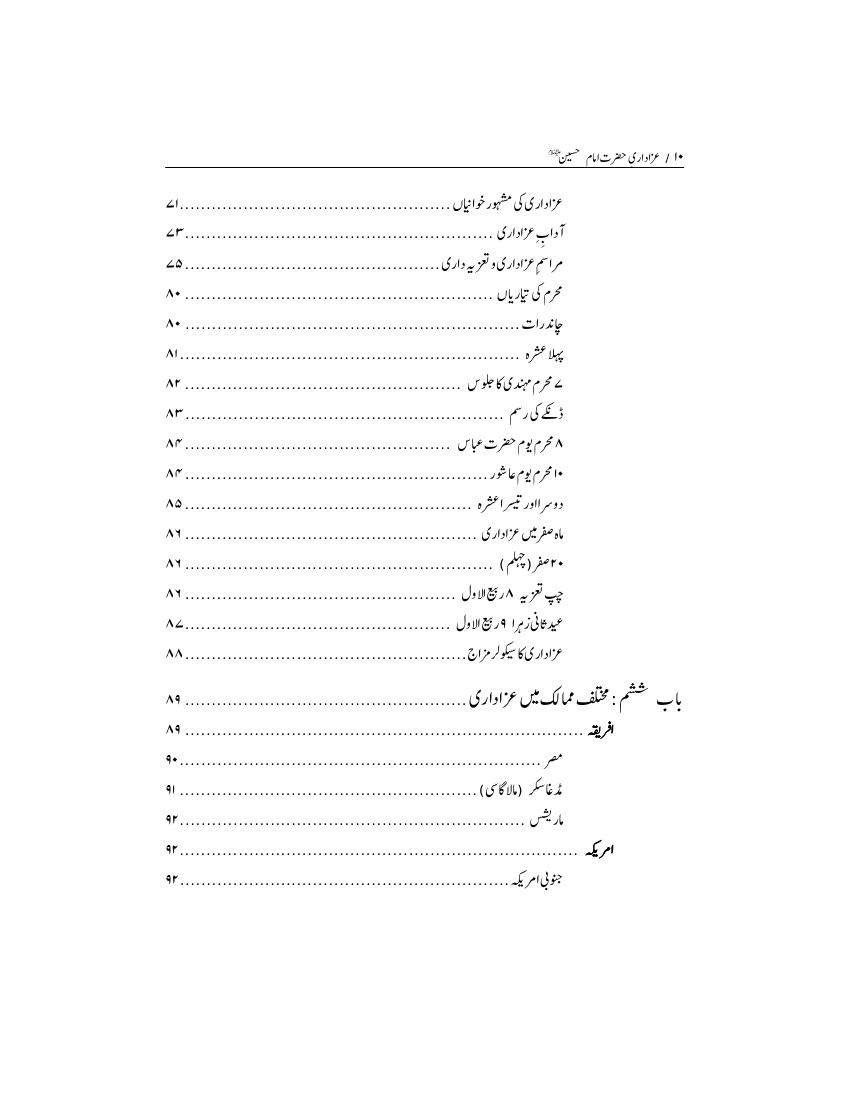 ۱۰ / عزاداری حضرت امام حسینؑ
عزاداری کی مشہور خوانیاں ۷۱
آدابِ عزاداری ۷۳
مراسمِ عزاداری و تعزیہ داری ۷۵
محرم کی تیاریاں ۸۰
چاند رات ۸۰
پہلا عشرہ ۸۱
۷ محرم مہندی کا جلوس ۸۲
ڈنکے کی رسم ۸۳
۸ محرم یوم حضرت عباس ۸۴
۱۰ محرم یوم عاشور ۸۴
دوسرا اور تیسرا عشرہ ۸۵
ماہ صفر میں عزاداری ۸۶
۲۰ صفر (چہلم) ۸۶
چپ تعزیہ ۸ ربیع الاول ۸۶
عید ثانی زہرا ۹ ربیع الاول ۸۷
عزاداری کا سیکولر مزاج ۸۸
باب ششم : مختلف ممالک میں عزاداری ۸۹
افریقہ ۸۹
مصر ۹۰
مڈغاسکر (مالاگاسی) ۹۱
ماریشس ۹۲
امریکہ ۹۲
جنوبی امریکہ ۹۲